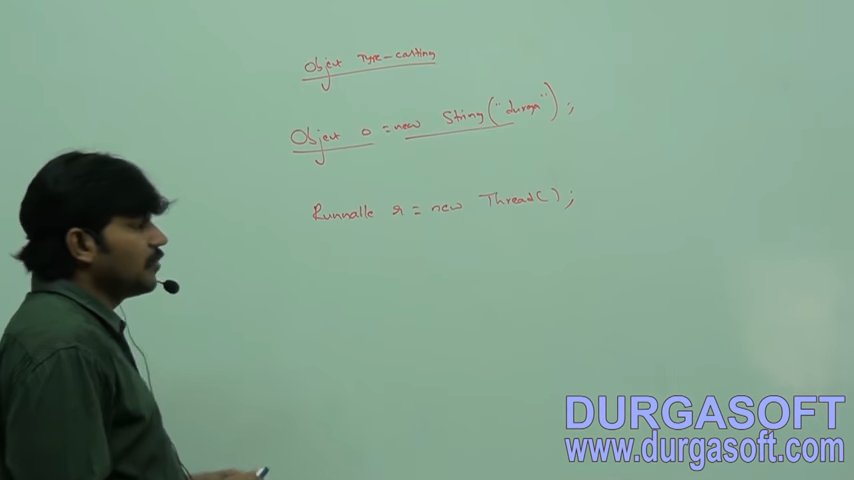 Object Type-casting
Object o = new String("durga");
Runnable r = new Thread();
DURGASOFT
www.durgasoft.com